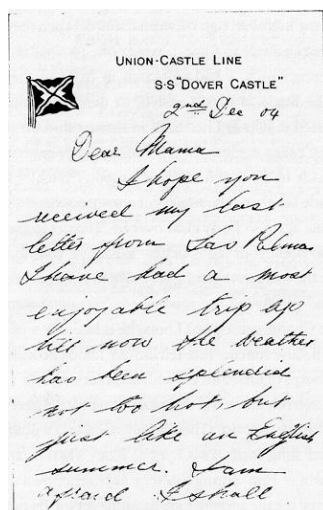 UNION-CASTLE LINE
S·S "DOVER CASTLE"
2nd Dec 04
Dear Mama
I hope you
received my last
letter from Las Palmas
I have had a most
enjoyable trip up
till now the weather
has been splendid
not too hot, but
just like an English
summer. I am
afraid I shall